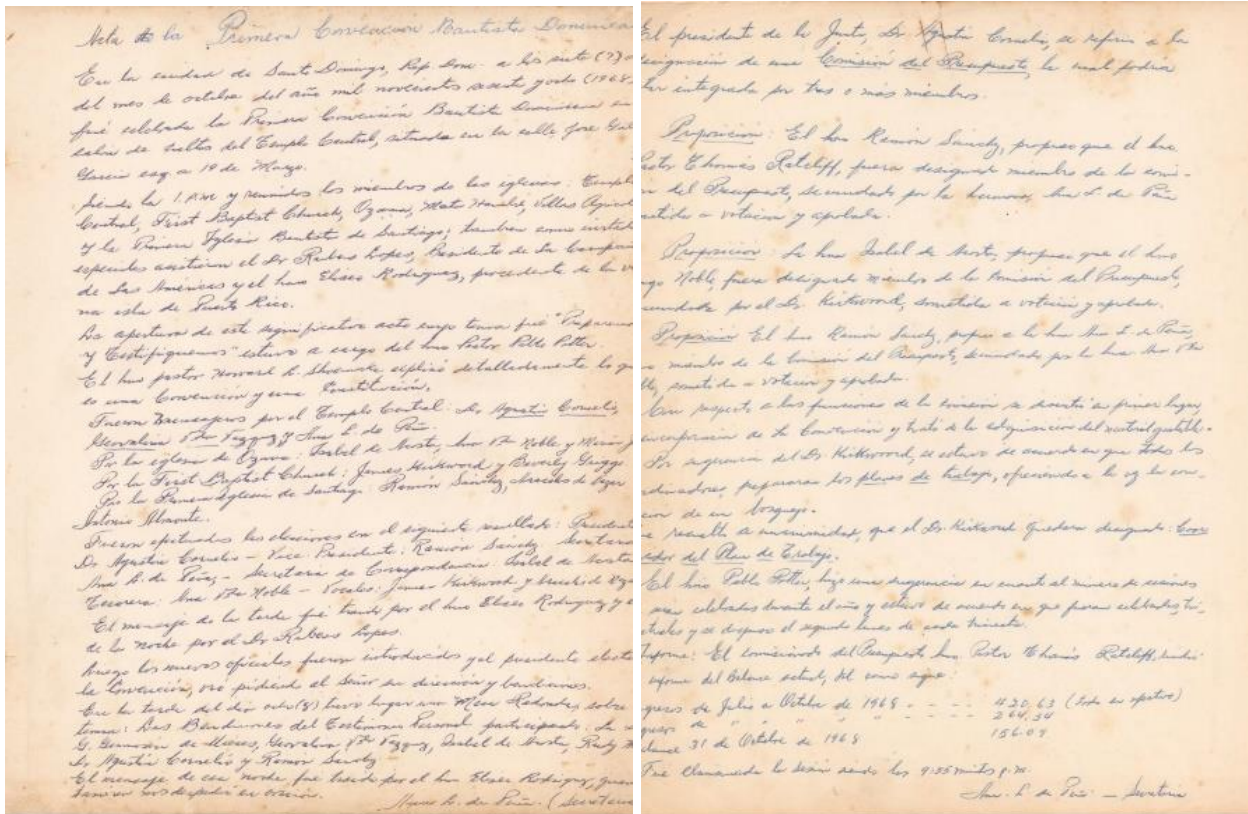 Acta de la Primera Convencion Bautista Dominica
En la ciudad de Santo Domingo, Rep. Dom. a los siete (7)
del mes de octubre del año mil novecientos sesenta y ocho (1968,
fué celebrada la Primera Convención Bautista Dominicana en
salón de cultos del Templo Central, situada en la calle José Gab
García esq a 19 de Marzo.
Siendo la 1. P.M y reunidos los miembros de las iglesias: Templo
Central, First Baptist Church, Ozama, Mata Hambre, Villas Agríco
y la Primera Iglesia Bautista de Santiago; tambien como invitad
especiales asistieron el Dr Rubens Lopes, Presidente de La Campaña
de Las Americas y el hno Eliseo Rodriguez, procedente de la ve
na isla de Puerto Rico.
La apertura de este significativo acto cuyo tema fué "Preparemo
y Testifiquemos" estuvo a cargo del hno Pastor Pablo Potter.
El hno pastor Howard L. Shoemake explicó detalladamente lo q
es una Convención y una Constitución.
Fueron Mensajeros por el Templo Central: Dr Agustín Cornelio,
Vda Vazquez y Ana L. de Peña.
Por la iglesia de Ozama: Isabel de Nosta, Ana Vda Noble y
Por la First Baptist Church: James Kirkwood y Beverly Griggs
Por la Primera Iglesia de Santiago: Ramón Sánchz,
Antonio Almonte.
Fueron efectuadas las elecciones con el siguiente resultado: Presidente
Dr Agustín Cornelio - Vice-Presidente: Ramón Sánchz Secretaria
Ana L. de Peña, - Secretaria de Correspondencia: Isabel de Nosta
Tesorera: Ana Vda Noble - Vocales: James Kirkwood y
El mensaje de la tarde fué traido por el hno Eliseo Rodriguez y e
de la noche por el Dr Rubens Lopes.
Luego los nuevos oficiales fueron introducidos y el presidente electo
la Convención, oró pidiendo al Señor su dirección y bendiciones.
En la tarde del día ocho (8) tuvo lugar una Mesa Redonda, sobre
tema: Las Bendiciones del Testimonio Personal participando: La
G. de Mieses, Vda Vazquez, Isabel de Nosta, Rudy
Dr Agustín Cornelio y Ramon Sanchz
El mensaje de esa noche fué traido por el hno Eliseo Rodriguez, quien
tambien nos despidió en oración.
Ana L. de Peña. (Secretaria
El presidente de la Junta, Dr. Agustín Cornelio, se refirió a la
esignación de una Comisión del Presupuesto, la cual podría
tar integrada por tres o más miembros.
Proposicion: El hno Ramón Sánchz, propuso que el hno
astor Thomás Ratcliff, fuera designado miembro de la comi-
n del Presupuesto, secundado por la hermana, Ana L. de Peña
metida a votación y aprobada.
Proposicion: La hna Isabel de Nosta, propuso que el hno
Noble, fuera designado miembro de la Comisión del Presupuesto,
ecundada por el Dr. Kirkwood, sometida a votación y aprobada.
Proposicion El hno Ramón Sanchz, propuso a la hna Ana L. de Peña,
o miembro de la Comisión del Presupuesto, secundado por la hna Ana Vda
ble, sometida a votacion y aprobada.
Con respecto a las funciones de la comision se discutió en primer lugar,
incorporacion de la Convencion y trató de la adquisicion del material gastable.
Por sugerencia del Dr. Kirkwood, se estuvo de acuerdo en que todos los
rdinadores prepararan los planes de trabajo, ofreciendo a la vez la con
cion de un bosquejo.
e resolvió a unanimidad, que el Dr. Kirkwood quedara designado: Coor
nador del Plan de Trabajo.
El hno Pablo Potter, hizo una sugerencia en cuanto al número de sesiones
sean celebradas durante el año y estuvo de acuerdo en que fueran celebradas, tri
strales y se dispuso el segundo lunes de cada trimestre.
Informe: El comisionado del Presupuesto hno Pastor Thomás Ratcliff, rindió
informe del Balance actual, tal como sigue:
gresos de Julio a Octubre de 1968 - - - - 420.63 (todo en efectivo)
gresos de " " " " " - - - - - 264.54
alance 31 de Octubre de 1968 156.09
Fue clausurada la sesión siendo las 9:55 minutos p.m.
Ana. L. de Peña - Secretaria